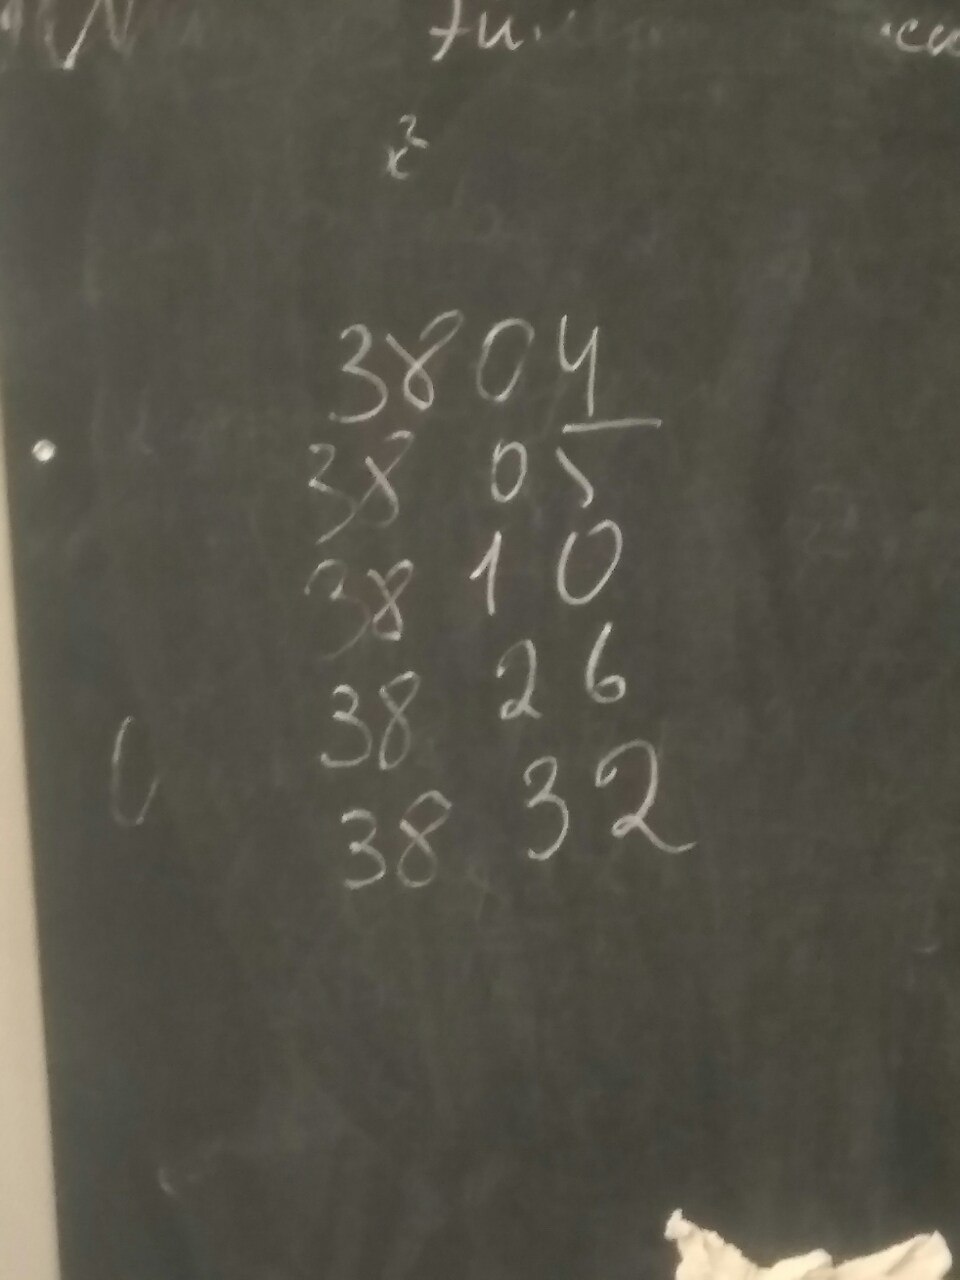 x²
38 04
38 05
38 10
38 26
38 32